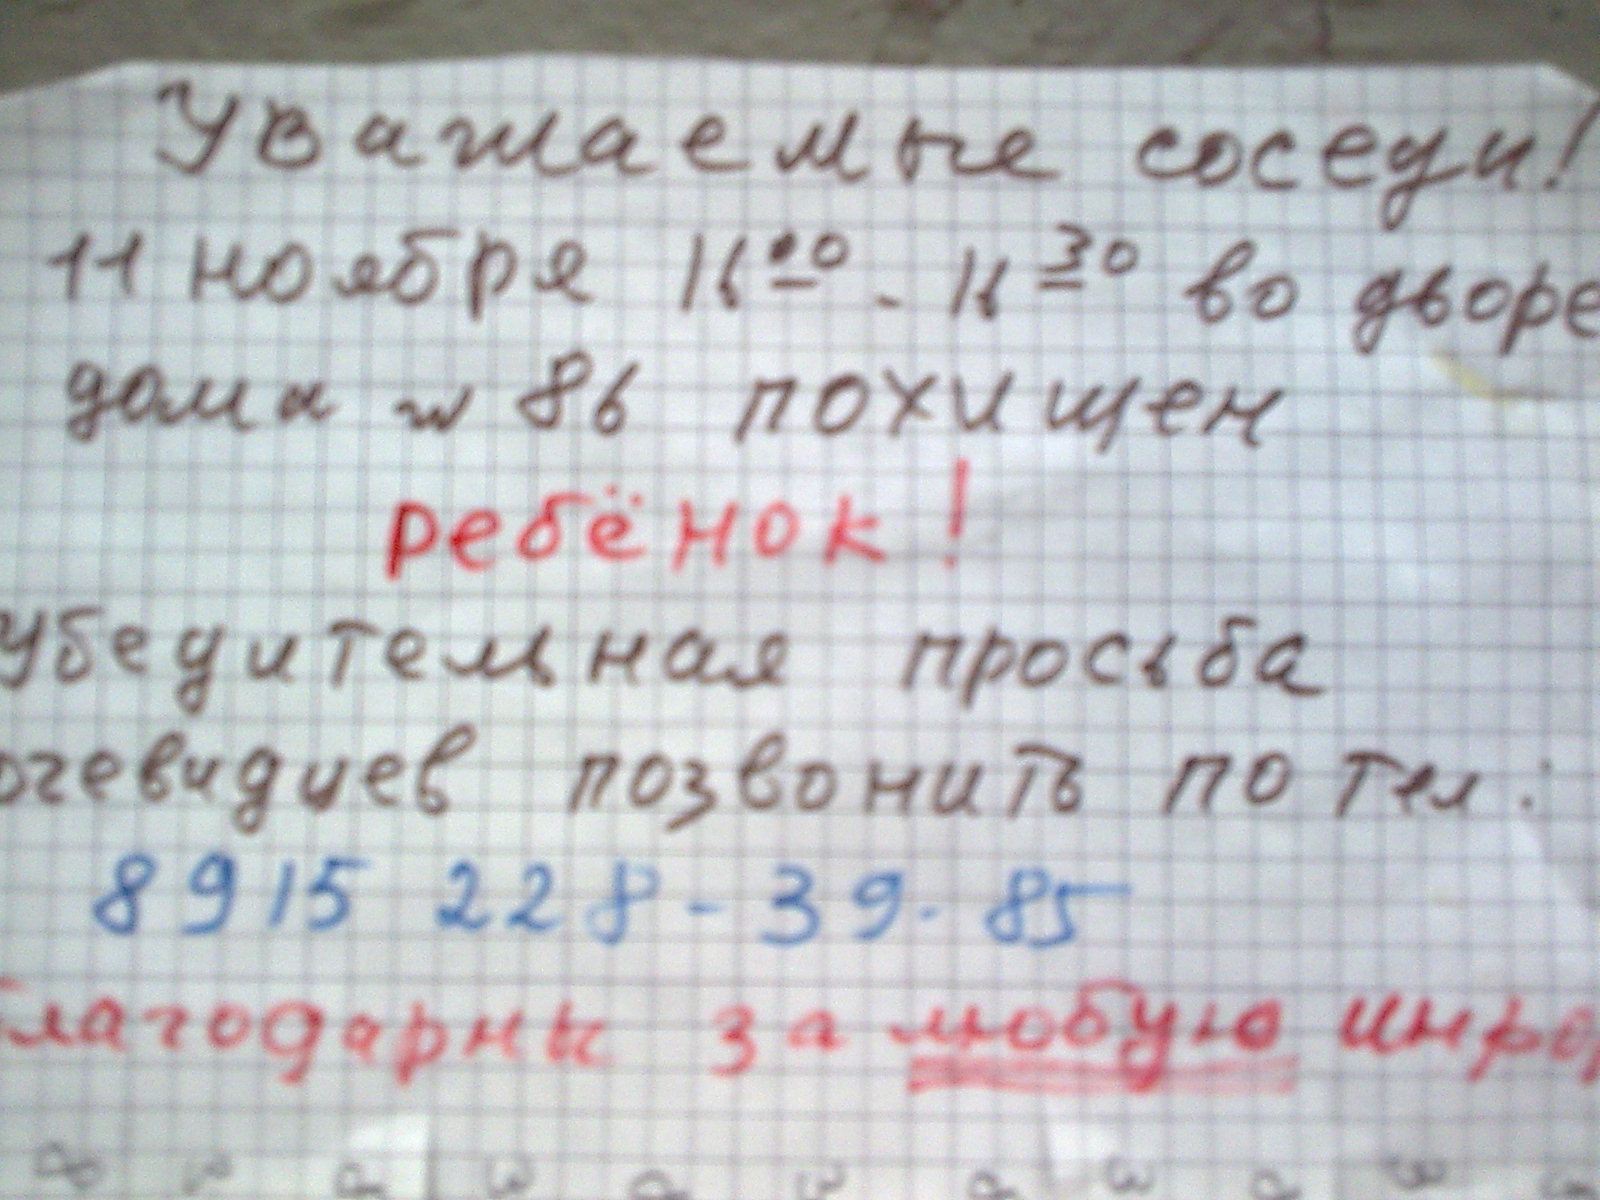 Уважаемые соседи!
11 ноября 16⁰⁰ - 16³⁰ во дворе
дома № 86 похищен
ребёнок!
убедительная просьба
очевидцев позвонить по тел:
8915 228-39-85
благодарны за любую инфор